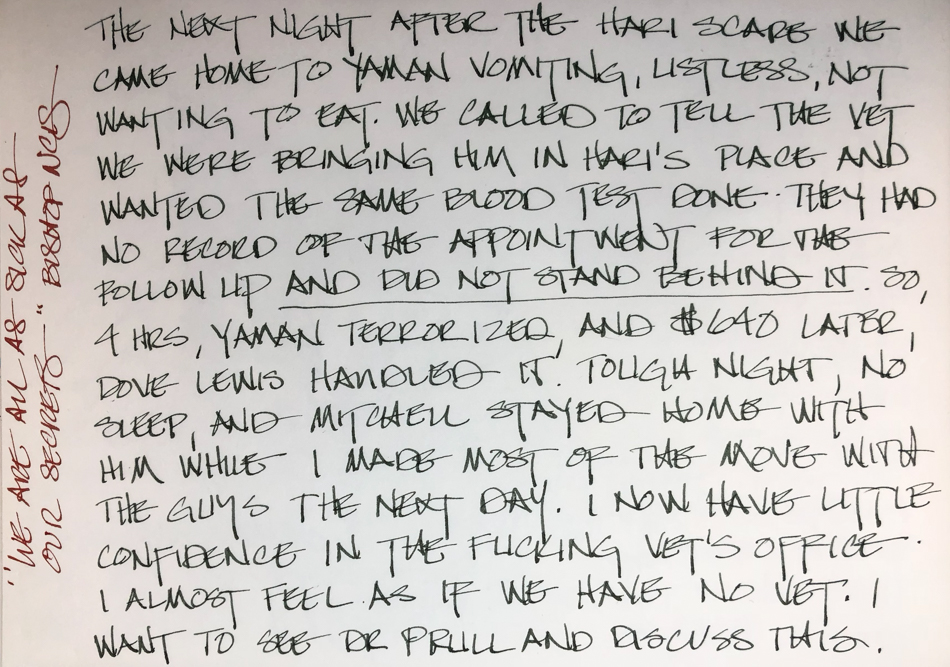 THE NEXT NIGHT AFTER THE HARI SCARE WE
CAME HOME TO YAMAN VOMITING, LISTLESS, NOT
WANTING TO EAT. WE CALLED TO TELL THE VET
WE WERE BRINGING HIM IN HARI'S PLACE AND
WANTED THE SAME BLOOD TEST DONE. THEY HAD
NO RECORD OF THE APPOINTMENT FOR THE
FOLLOW UP AND DID NOT STAND BEHIND IT. SO,
4 HRS, YAMAN TERRORIZED, AND $640 LATER,
DOVE LEWIS HANDLED IT. TOUGH NIGHT, NO
SLEEP, AND MITCHELL STAYED HOME WITH
HIM WHILE I MADE MOST OF THE MOVE WITH
THE GUYS THE NEXT DAY. I NOW HAVE LITTLE
CONFIDENCE IN THE FUCKING VET'S OFFICE.
I ALMOST FEEL AS IF WE HAVE NO VET. I
WANT TO SEE DR PRULL AND DISCUSS THIS.
"WE ARE ALL AS SICK AS
OUR SECRETS" BISHOP